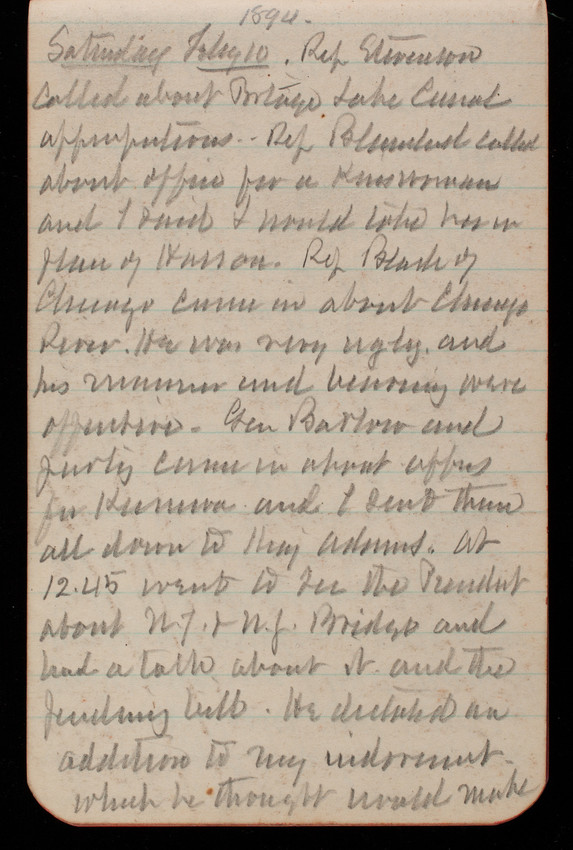 1894.
Saturday Feby 10. Rep Stevenson
called about Portage Lake Canal
appropriations. - Rep called
about office for a Kinswoman
and I said I would take her in
place of Hasson. Rep Black of
Chicago came in about Chicago
River. He was very ugly. and
his manner and bearing were
offensive. - Gen Barlow and
party came in about offices
for and I sent them
all down to Maj Adams. At
12.45 went to see the President
about N.Y. & N.J. Bridge and
had a talk about it and the
pending bill. He dictated an
addition to my indorsment.
which he thought would make